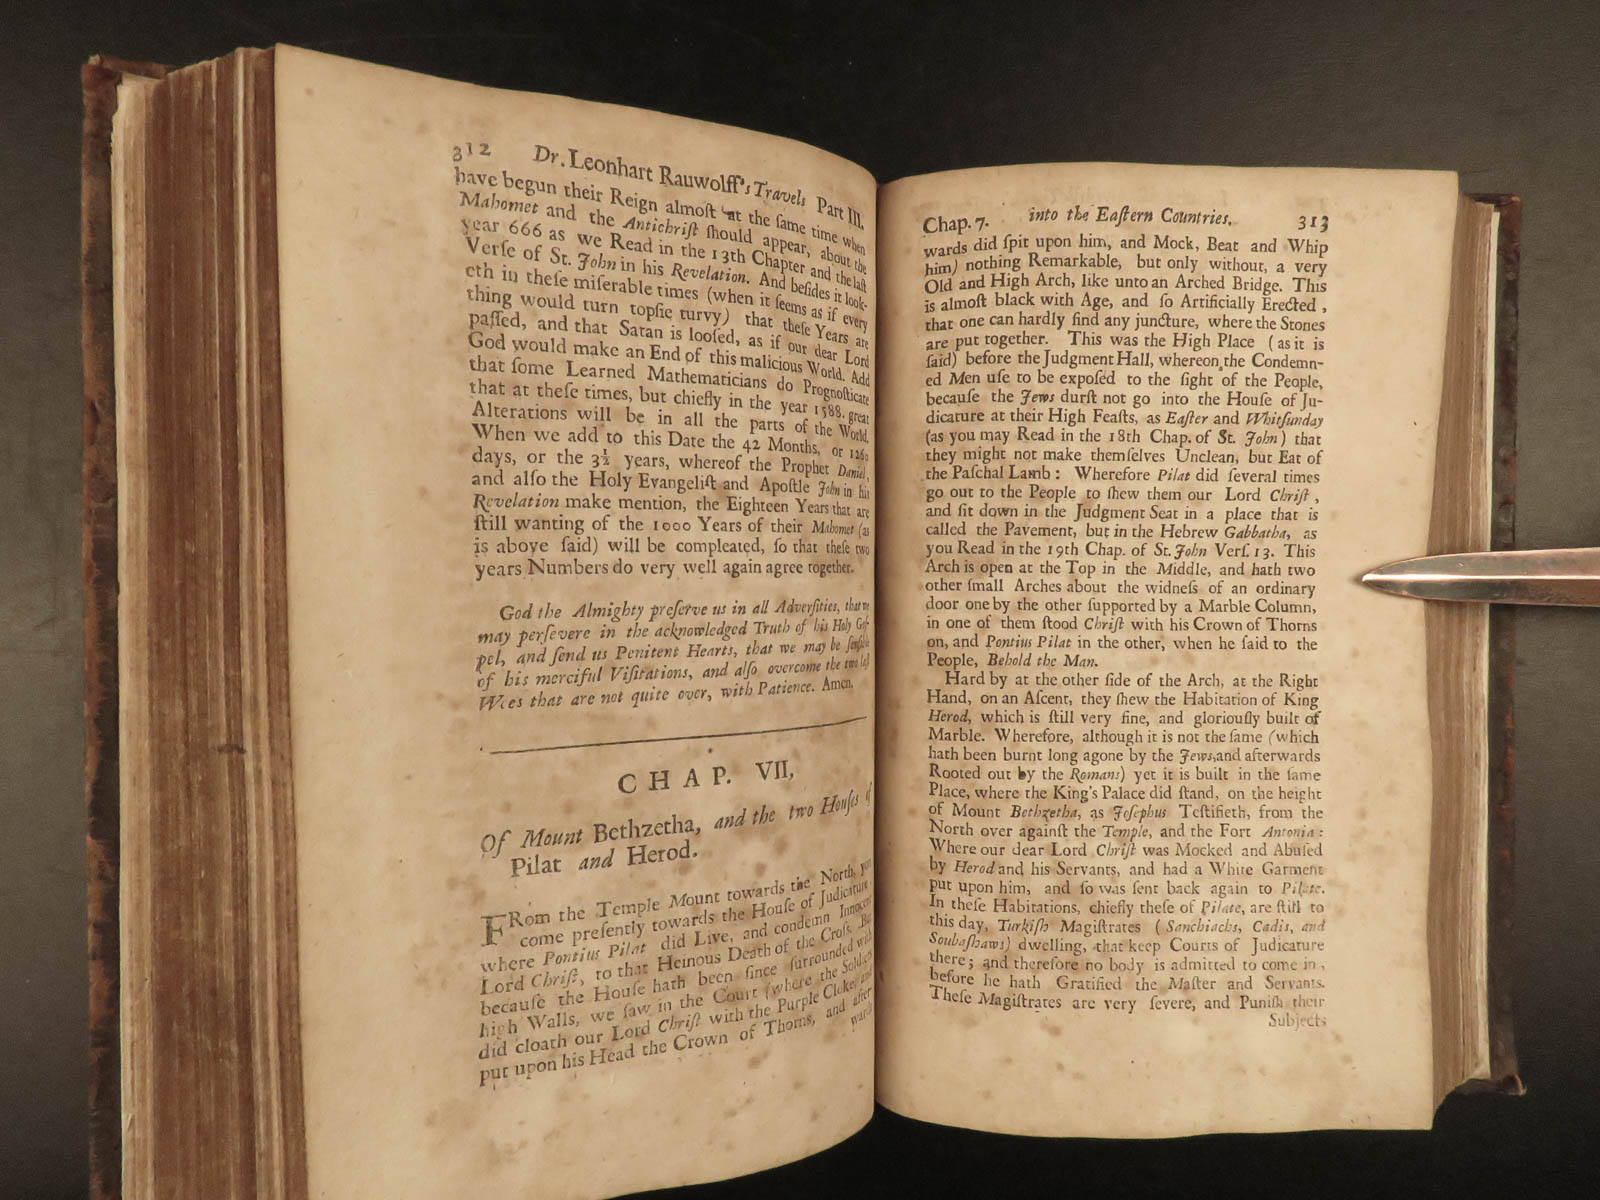 312 Dr. Leonhart Rauwolff's Travels Part III.
have begun their Reign almoſt at the ſame time when
Mahomet and the Antichriſt ſhould appear, about the
year 666 as we Read in the 13th Chapter and the laſt
Verſe of St. John in his Revelation. And beſides it look-
eth in theſe miſerable times (when it ſeems as if every
thing would turn topſie turvy) that theſe Years are
paſſed, and that Satan is looſed, as if our dear Lord
God would make an End of this malicious World. Add
that ſome Learned Mathematicians do Prognoſticate
that at theſe times, but chiefly in the year 1588. great
Alterations will be in all the parts of the World,
When we add to this Date the 42 Months, or 1260
days, or the 3½ years, whereof the Prophet Daniel,
and alſo the Holy Evangeliſt and Apoſtle John in his
Revelation make mention, the Eighteen Years that are
ſtill wanting of the 1000 Years of their Mahomet (as
is above ſaid) will be compleated, ſo that theſe two
years Numbers do very well again agree together.
God the Almighty preſerve us in all Adverſities, that we
may perſevere in the acknowledged Truth of his Holy Goſ-
pel, and ſend us Penitent Hearts, that we may be ſenſible
of his merciful Viſitations, and alſo overcome the two laſt
Woes that are not quite over, with Patience. Amen.
CHAP. VII,
Of Mount Bethzetha, and the two Houſes of
Pilat and Herod.
FRom the Temple Mount towards the North, you
come preſently towards the Houſe of Judicature,
where Pontius Pilat did Live, and condemn Innocent
Lord Chriſt, to that Heinous Death of the Croſs. But
becauſe the Houſe hath been ſince ſurrounded with
high Walls, we ſaw in the Court (where the Soldiers
did cloath our Lord Chriſt with the Purple Cloke, and
put upon his Head the Crown of Thorns, and after
wards
Chap. 7. into the Eaſtern Countries. 313
wards did ſpit upon him, and Mock, Beat and Whip
him) nothing Remarkable, but only without, a very
Old and High Arch, like unto an Arched Bridge. This
is almoſt black with Age, and ſo Artificially Erected,
that one can hardly find any juncture, where the Stones
are put together. This was the High Place (as it is
ſaid) before the Judgment Hall, whereon the Condemn-
ed Men uſe to be expoſed to the ſight of the People,
becauſe the Jews durſt not go into the Houſe of Ju-
dicature at their High Feaſts, as Eaſter and Whitſunday
(as you may Read in the 18th Chap. of St. John) that
they might not make themſelves Unclean, but Eat of
the Paſchal Lamb: Wherefore Pilat did ſeveral times
go out to the People to ſhew them our Lord Chriſt,
and ſit down in the Judgment Seat in a place that is
called the Pavement, but in the Hebrew Gabbatha, as
you Read in the 19th Chap. of St. John Verſ. 13. This
Arch is open at the Top in the Middle, and hath two
other ſmall Arches about the widneſs of an ordinary
door one by the other ſupported by a Marble Column,
in one of them ſtood Chriſt with his Crown of Thorns
on, and Pontius Pilat in the other, when he ſaid to the
People, Behold the Man.
Hard by at the other ſide of the Arch, at the Right
Hand, on an Aſcent, they ſhew the Habitation of King
Herod, which is ſtill very fine, and gloriouſly built of
Marble. Wherefore, although it is not the ſame (which
hath been burnt long agone by the Jews, and afterwards
Rooted out by the Romans) yet it is built in the ſame
Place, where the King's Palace did ſtand, on the height
of Mount Bethzetha, as Joſephus Teſtifieth, from the
North over againſt the Temple, and the Fort Antonia:
Where our dear Lord Chriſt was Mocked and Abuſed
by Herod and his Servants, and had a White Garment
put upon him, and ſo was ſent back again to Pilate.
In theſe Habitations, chiefly theſe of Pilate, are ſtill to
this day, Turkiſh Magiſtrates (Sanchiachs, Cadis, and
Soubaſhaws) dwelling, that keep Courts of Judicature
there; and therefore no body is admitted to come in,
before he hath Gratified the Maſter and Servants.
Theſe Magiſtrates are very ſevere, and Puniſh their
Subjects